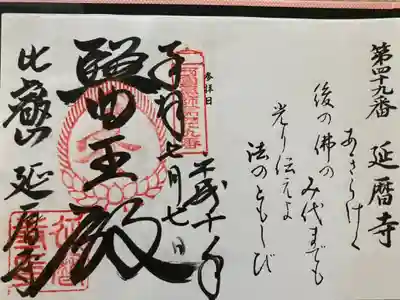 第四十九番 延暦寺
あきらけく
後の佛の
み代までも
光り伝えよ
法のともしび
参拝日
平成十年
七月七日
醫王殿
比叡山 延暦寺